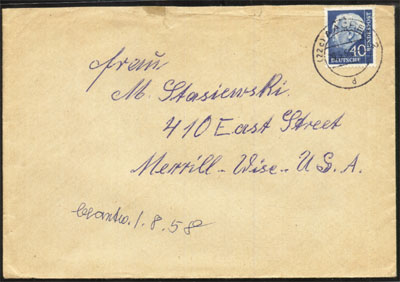 (22c) AACHEN
d
DEUTSCHE
BUNDESPOST
40
Frau
M. Stasiewski.
410 East Street
Merrill-Wisc-U.S.A.
beantw. 1.8.58